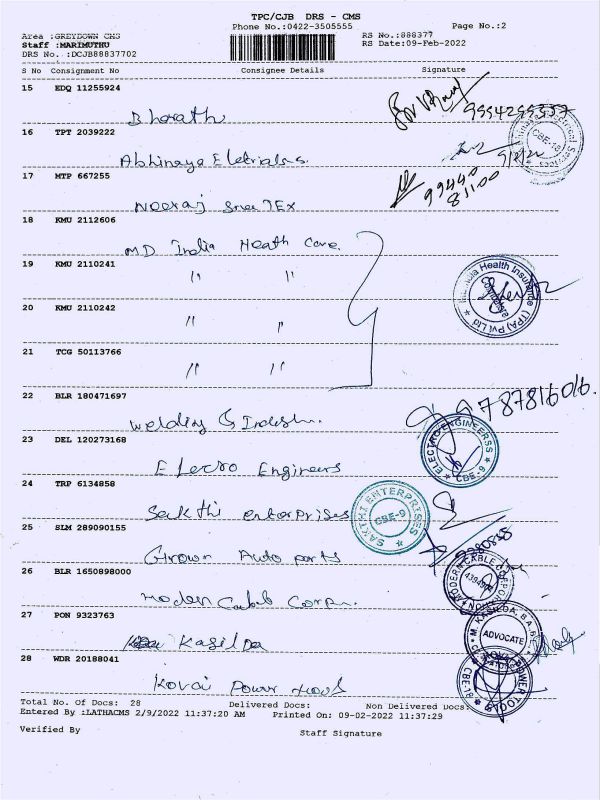 TPC/CJB DRS - CMS
Phone No.:0422-3505555 Page No.:2
Area :GREYDOWN CMS RS No.:888377
Staff :MARIMUTHU RS Date:09-Feb-2022
DRS No. :DCJB88837702
S No Consignment No Consignee Details Signature
15 EDQ 11255924
Bharath
16 TPT 2039222
Abhinaya
CBE-18
17 MTP 667255
99440
81100
Neeraj Sree TEX
18 KMU 2112606
MD India Heath Care.
19 KMU 2110241
" "
India Health Insurance (TPA) Pvt Ltd
20 KMU 2110242
" "
21 TCG 50113766
" "
22 BLR 180471697
Welding &
23 DEL 120273168
ELECTRO ENGINEERSS CBE-9
Elecro Engineers
24 TRP 6134858
Sakthi enterprises
SAKTHI ENTERPRISES CBE-9
25 SLM 289090155
Grown Auto parts
26 BLR 1650898000
MODERN CABLE CORPORATION
Modern Corpn.
27 PON 9323763
M. KASILDA, B.A., B.L. ADVOCATE
Kasilda
28 WDR 20188041
KOVAI POWER TOOLS CBE-18
Kovai Power Tools
Total No. Of Docs: 28 Delivered Docs: Non Delivered Docs:
Entered By :LATHACMS 2/9/2022 11:37:20 AM Printed On: 09-02-2022 11:37:29
Verified By Staff Signature